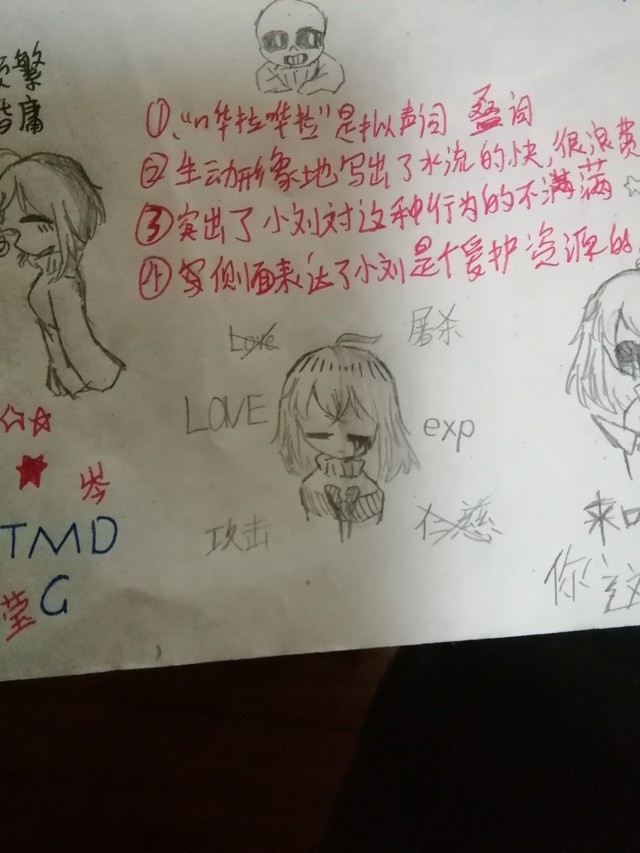 繁
庸
①、“哗拉哗拉”是拟声词 叠词
②生动形象地写出了水流的快,很浪费
③突出了小刘对这种行为的不满
④写侧面表达了小刘是个爱护资源的
Love
屠杀
LOVE
exp
攻击
仁慈
岑
TMD
莹G
来
你这